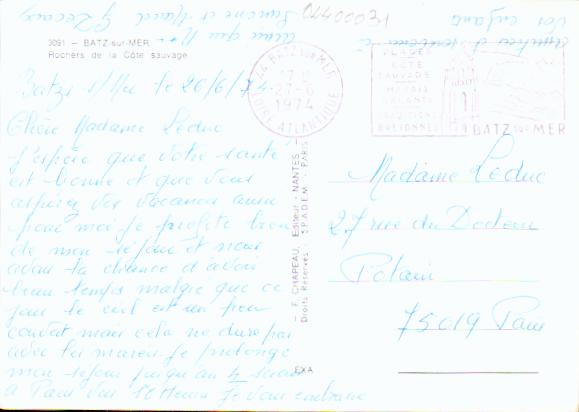 3091 - BATZ-sur-MER
Rochers de la Côte sauvage
04400031
44 BATZ SUR MER
27-6
1974
LOIRE ATLANTIQUE
PLAGE
CÔTE
SAUVAGE
MARAIS
SALANTS
BATZ sur MER
Batz s/Mer le 26/6/74
Chère Madame Leduc
j'espère que votre santé
est bonne et que vous
vos vacances aussi
pour moi je profite bien
de mon séjour et nous
avons la chance d'avoir
beau temps malgré que ce
jour le ciel est un peu
couvert mais cela ne dure pas
avec les marées je prolonge
mon séjour jusqu'au 4
à Paris Je vous embrasse
ainsi que Mr
Simone et Marcel
vos enfants
- F. CHAPEAU, Editeur - NANTES -
Droits Réservés SPADEM PARIS
EXA
Madame Leduc
27 rue du Docteur
Potain
75019 Paris